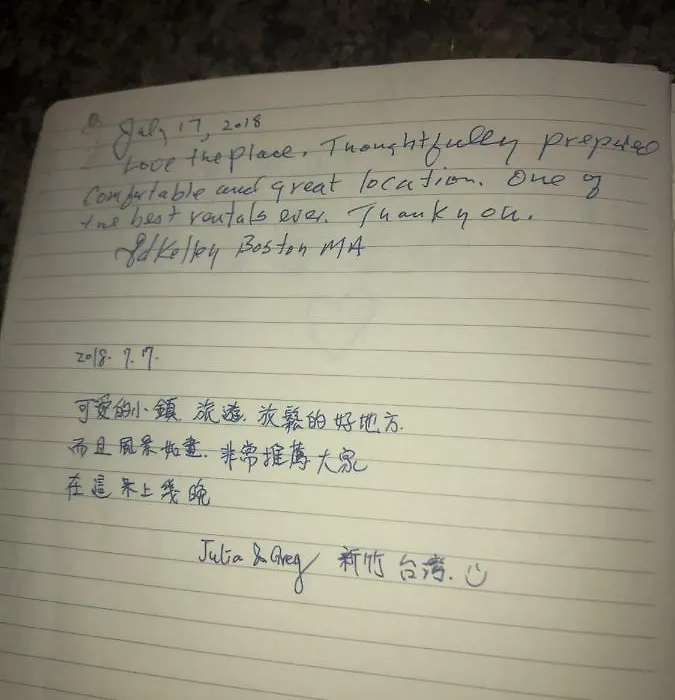 July 17, 2018
Love the place. Thoughtfully prepared
comfortable and great location. One of
the best rentals ever. Thank you.
Ed Kelley Boston MA
2018. 7. 7.
可愛的小鎮 旅遊. 放鬆的好地方.
而且風景如畫. 非常推薦大家
在這 上幾晚
Julia & Greg 新竹 台湾. ☺